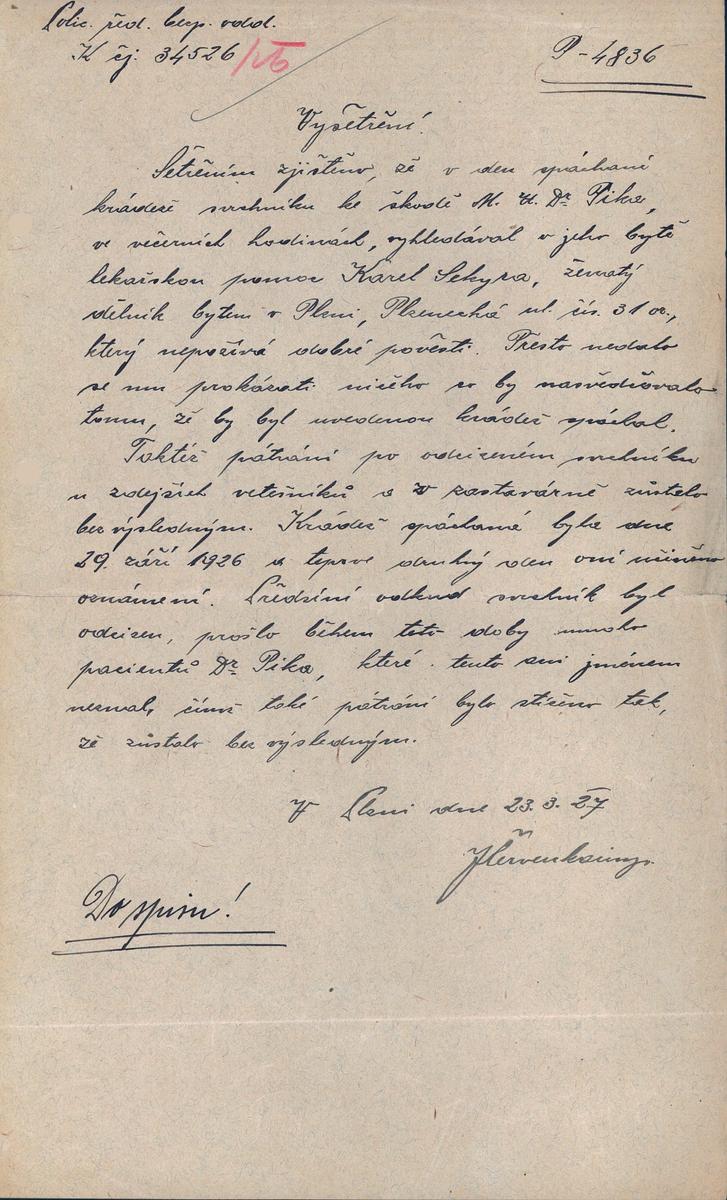 Polic. řed. bezp. odd.
K čj: 34526/26
P-4836
Vyšetření!
Šetřením zjištěno, že v den spáchání
krádeže svrchníku ke škodě M. U. Dr Pika,
ve večerních hodinách, vyhledával v jeho bytě
lékařskou pomoc Karel Sekyra, ženatý
dělník bytem v Plzni, Plzenecká ul. čís. 31
který nepožívá dobré pověsti. Přesto nedalo
se mu prokázati ničeho co by nasvědčovalo
tomu, že by byl uvedenou krádež spáchal.
Taktéž pátrání po odcizeném svrchníku
u zdejších vetešníků a v zastavárně zůstalo
bezvýsledným. Krádež spáchaná byla dne
29. září 1926 a teprve druhý den oní učiněno
oznámení. Předsíní odkud svrchník byl
odcizen, prošlo během této doby mnoho
pacientů Dr Pika, které tento ani jménem
neznal, čímž také pátrání bylo stíženo tak,
že zůstalo bezvýsledným.
V Plzni dne 23.3.27
Do spisu!